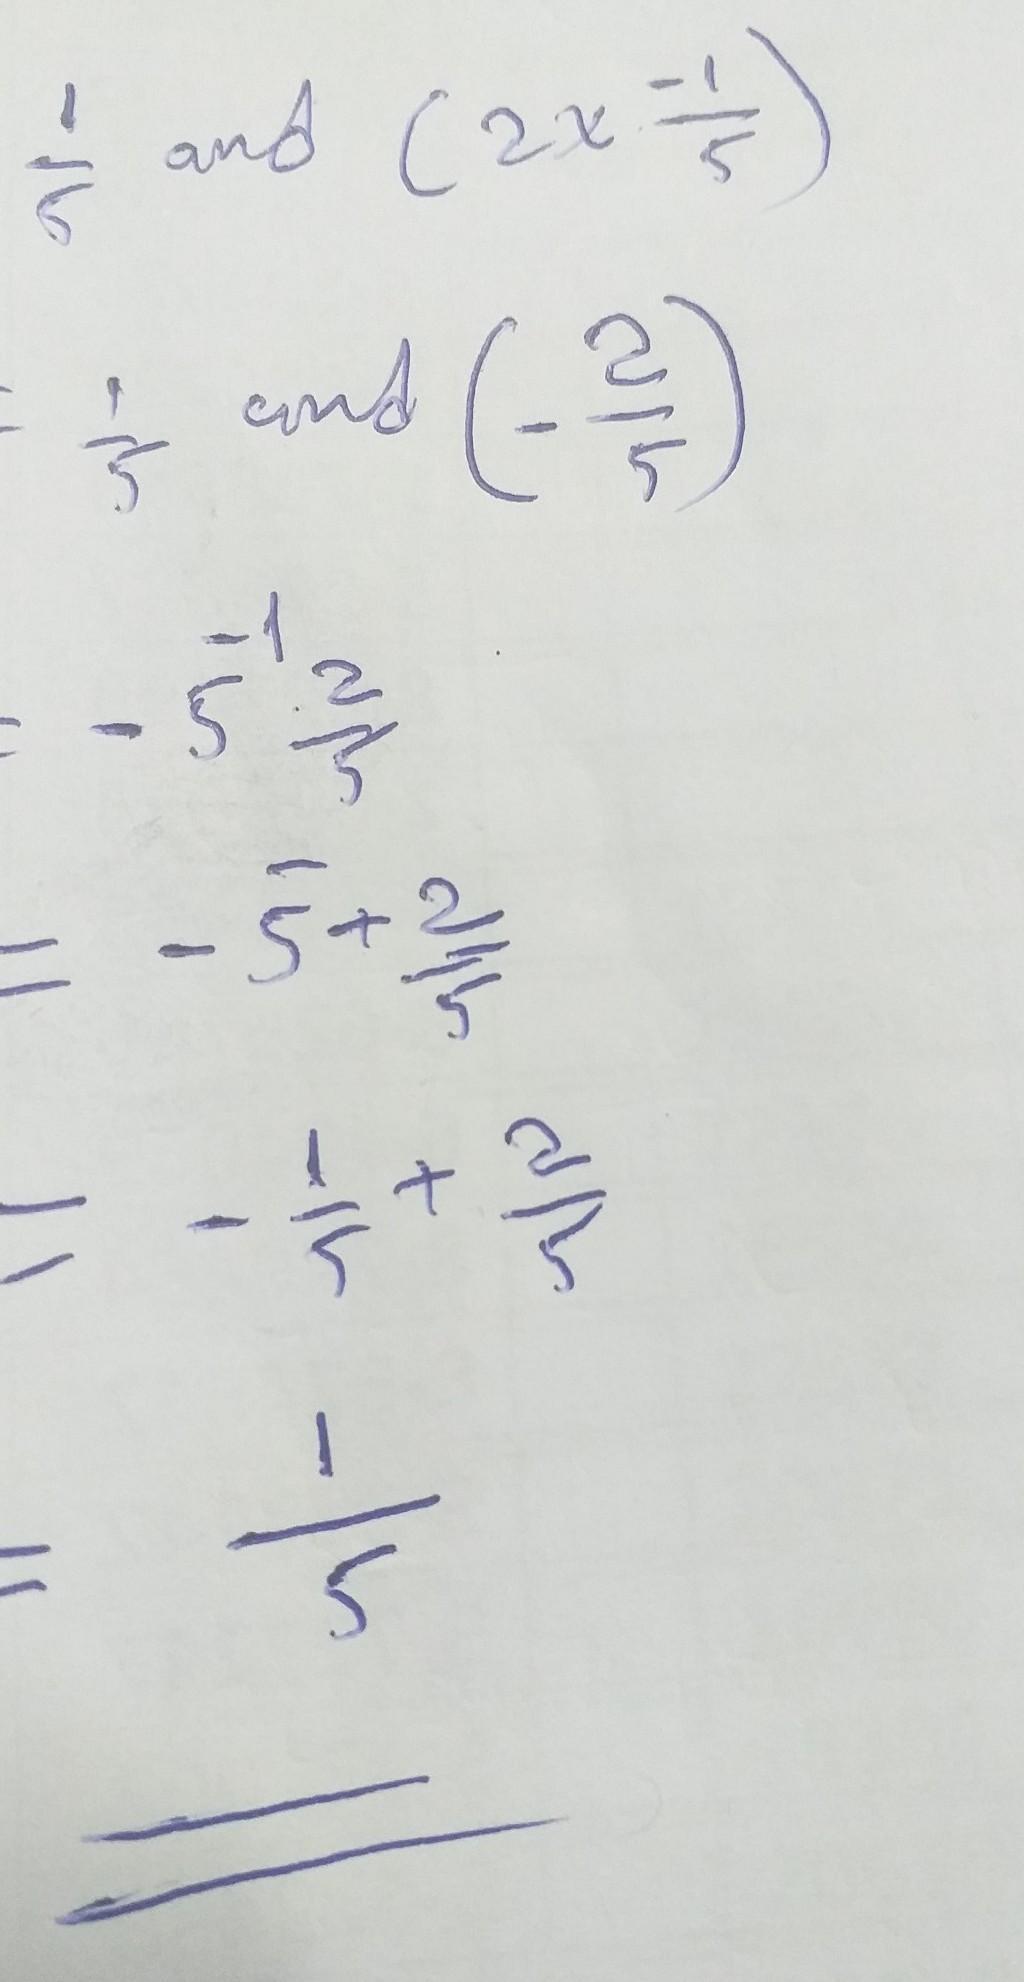 1/5 and (2x -1/5)
= 1/5 and (- 2/5)
= - 5⁻¹ 2/5
= - 5⁻ + 2/5
= - 1/5 + 2/5
= 1/5